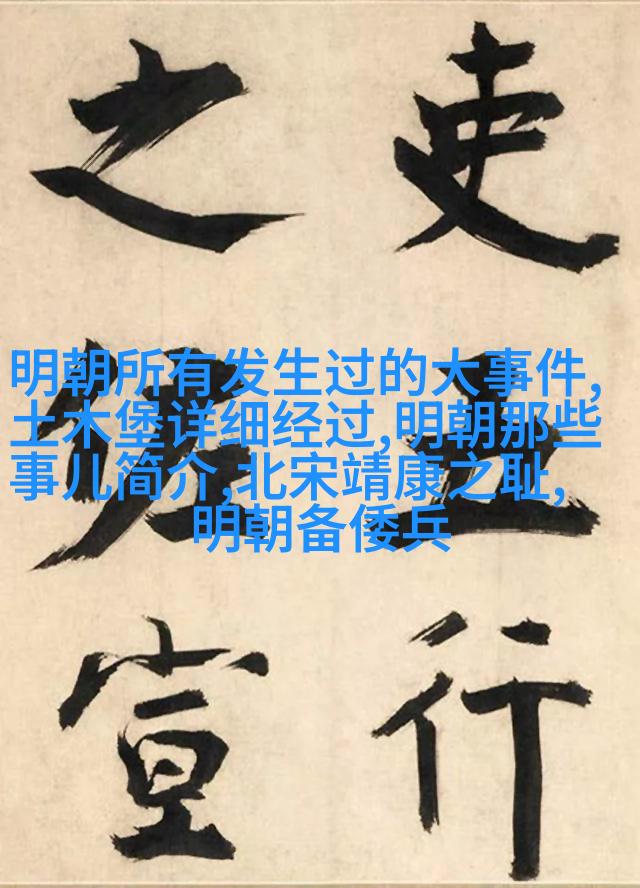 吏行
之宣
明朝所有发生过的大事件,
土木堡详细经过,明朝那些
事儿简介,北宋靖康之耻,
明朝备倭兵